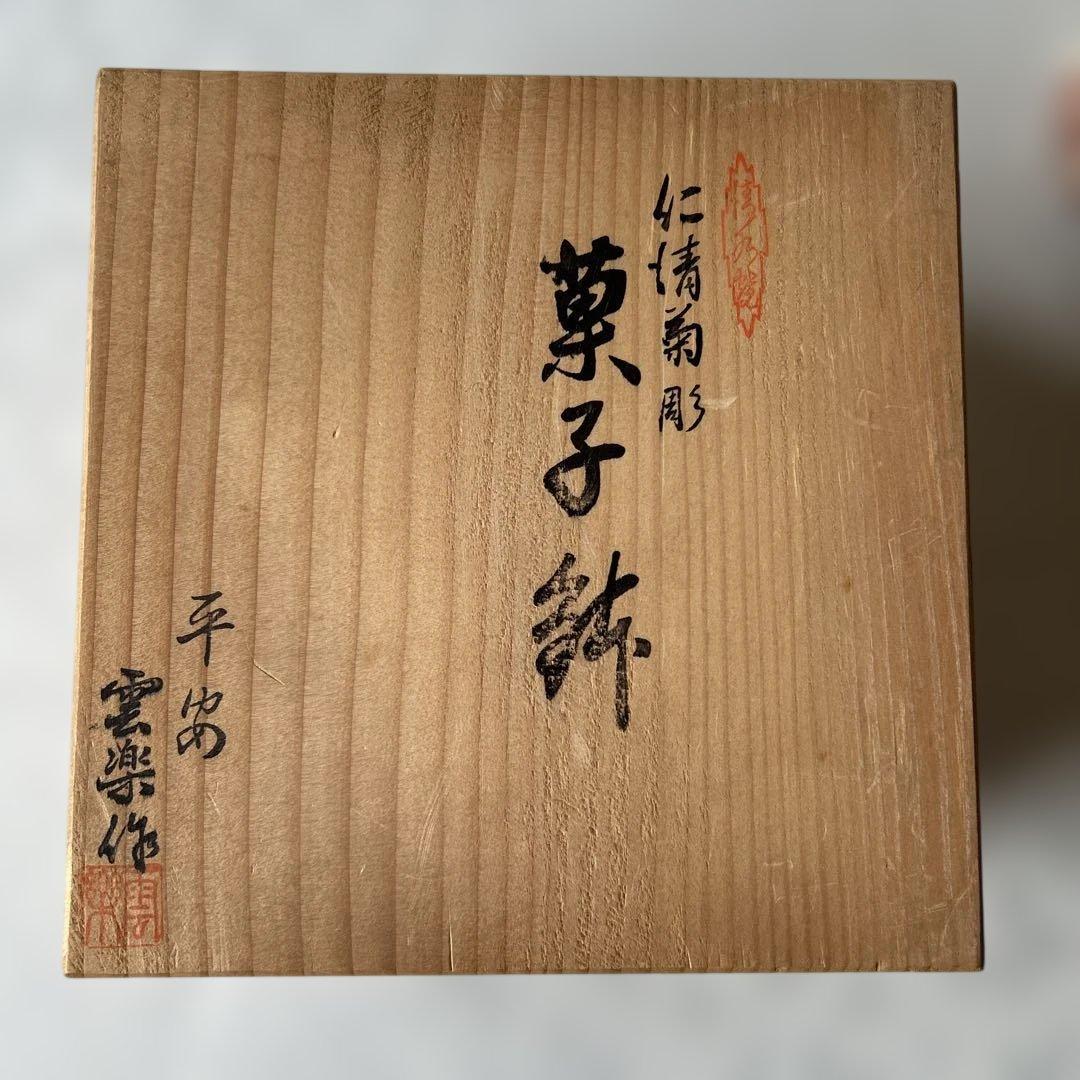 仁清菊彫
菓子鉢
平安
雲楽作
雲楽